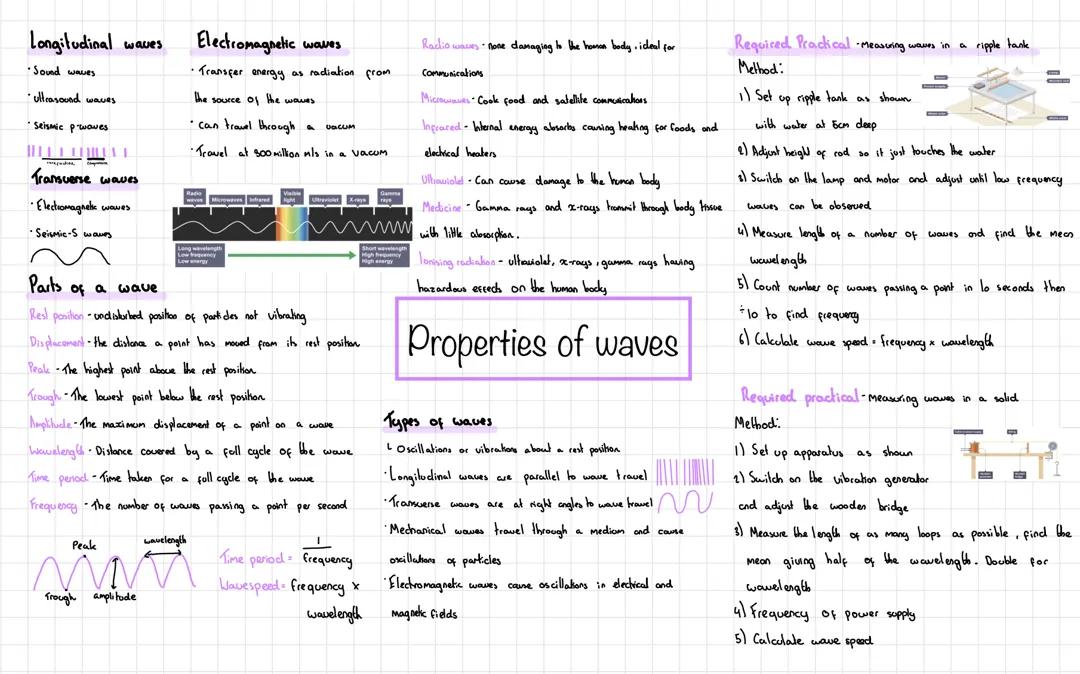 Longitudinal waves
· Sound waves
· Ultrasound waves
· Seismic p-waves
Transverse waves
· Electromagnetic waves
· Seismic-S waves
Electromagnetic waves
· Transfer energy as radiation from
the source of the waves
· Can travel through a vacum
· Travel at 300 million m/s in a vacum
Radio waves
Microwaves
Infrared
Visible light
Ultraviolet
X-rays
Gamma rays
Long wavelength
Low frequency
Low energy
Short wavelength
High frequency
High energy
Parts of a wave
Rest position - undisturbed position of particles not vibrating
Displacement - the distance a point has moved from its rest position
Peak - The highest point above the rest position
Trough - The lowest point below the rest position
Amplitude - The maximum displacement of a point on a wave
Wavelength - Distance covered by a full cycle of the wave
Time period - Time taken for a full cycle of the wave
Frequency - The number of waves passing a point per second
Peak
wavelength
Trough
amplitude
Time period = 1 / frequency
Wavespeed = frequency x
wavelength
Radio waves - none damaging to the human body, ideal for
communications
Microwaves - Cook food and satellite communications
Infrared - Internal energy absorbs causing heating for foods and
electrical heaters
Ultraviolet - Can cause damage to the human body
Medicine - Gamma rays and x-rays transmit through body tissue
with little absorption.
Ionising radiation - ultraviolet, x-rays, gamma rays having
hazardous effects on the human body
Properties of waves
Types of waves
↳ Oscillations or vibrations about a rest position
· Longitudinal waves are parallel to wave travel
· Transverse waves are at right angles to wave travel
· Mechanical waves travel through a medium and cause
oscillations of particles
· Electromagnetic waves cause oscillations in electrical and
magnetic fields
Required Practical - Measuring waves in a ripple tank
Method:
1) Set up ripple tank as shown
with water at 5cm deep
2) Adjust height of rod so it just touches the water
3) Switch on the lamp and motor and adjust until low frequency
waves can be observed
4) Measure length of a number of waves and find the mean
wavelength
5) Count number of waves passing a point in 10 seconds then
÷10 to find frequency
6) Calculate wave speed = frequency x wavelength
Required practical - Measuring waves in a solid
Method:
1) Set up apparatus as shown
2) Switch on the vibration generator
and adjust the wooden bridge
3) Measure the length of as many loops as possible, find the
mean giving half of the wavelength. Double for
wavelength
4) Frequency of power supply
5) Calculate wave speed